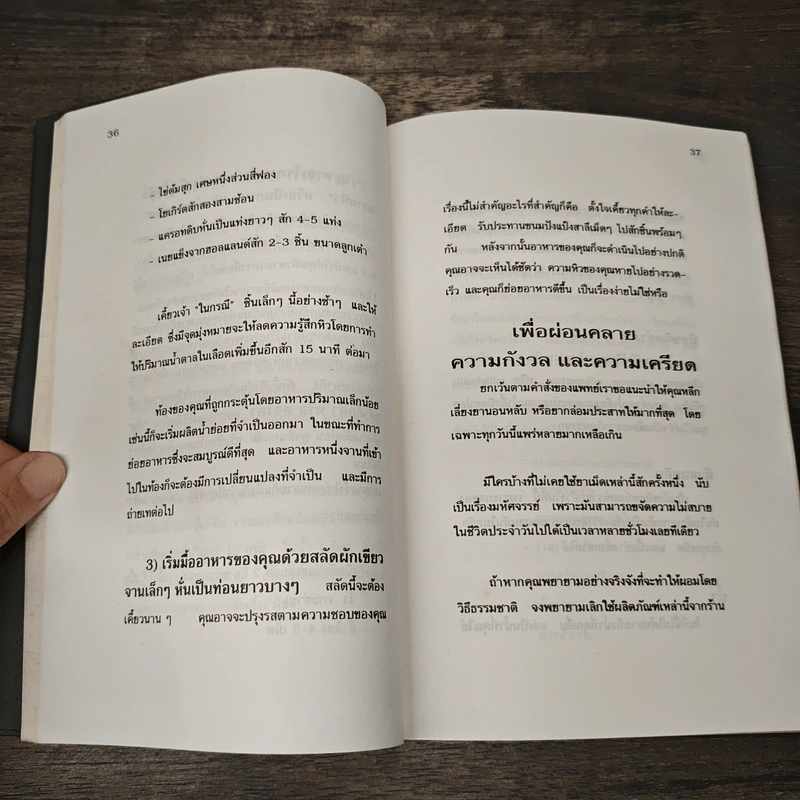 36
- ไข่ต้มสุก เศษหนึ่งส่วนสี่ฟอง
- โยเกิร์ตสักสองสามช้อน
- แครอทดิบหั่นเป็นแท่งยาวๆ สัก 4-5 แท่ง
- เนยแข็งจากฮอลแลนด์สัก 2-3 ชิ้น ขนาดลูกเต๋า
เคี้ยวเจ้า "ในกรณี" ชิ้นเล็กๆ นี้อย่างช้าๆ และให้
ละเอียด ซึ่งมีจุดมุ่งหมายจะให้ลดความรู้สึกหิวโดยการทำ
ให้ปริมาณน้ำตาลในเลือดเพิ่มขึ้นอีกสัก 15 นาที ต่อมา
ท้องของคุณที่ถูกกระตุ้นโดยอาหารปริมาณเล็กน้อย
เช่นนี้ก็จะเริ่มผลิตน้ำย่อยที่จำเป็นออกมา ในขณะที่ทำการ
ย่อยอาหารซึ่งจะสมบูรณ์ดีที่สุด และอาหารหนึ่งจานที่เข้า
ไปในท้องก็จะต้องมีการเปลี่ยนแปลงที่จำเป็น และมีการ
ถ่ายเทต่อไป
3) เริ่มมื้ออาหารของคุณด้วยสลัดผักเขียว
จานเล็กๆ หั่นเป็นท่อนยาวบางๆ สลัดนี้จะต้อง
เคี้ยวนาน ๆ คุณอาจจะปรุงรสตามความชอบของคุณ
37
เรื่องนี้ไม่สำคัญอะไรที่สำคัญก็คือ ตั้งใจเคี้ยวทุกคำให้ละ-
เอียด รับประทานขนมปังแป้งสาลีเม็ดๆ ไปสักชิ้นพร้อมๆ
กัน หลังจากนั้นอาหารของคุณก็จะดำเนินไปอย่างปกติ
คุณอาจจะเห็นได้ชัดว่า ความหิวของคุณหายไปอย่างรวด-
เร็ว และคุณก็ย่อยอาหารดีขึ้น เป็นเรื่องง่ายไม่ใช่หรือ
เพื่อผ่อนคลาย
ความกังวล และความเครียด
ยกเว้นตามคำสั่งของแพทย์เราขอแนะนำให้คุณหลีก
เลี่ยงยานอนหลับ หรือยากล่อมประสาทให้มากที่สุด โดย
เฉพาะทุกวันนี้แพร่หลายมากเหลือเกิน
มีใครบ้างที่ไม่เคยใช้ยาเม็ดเหล่านี้สักครั้งหนึ่ง นับ
เป็นเรื่องมหัศจรรย์ เพราะมันสามารถขจัดความไม่สบาย
ในชีวิตประจำวันไปได้เป็นเวลาหลายชั่วโมงเลยทีเดียว
ถ้าหากคุณพยายามอย่างจริงจังที่จะทำให้ผอมโดย
วิธีธรรมชาติ จงพยายามเลิกใช้ผลิตภัณฑ์เหล่านี้จากร้าน